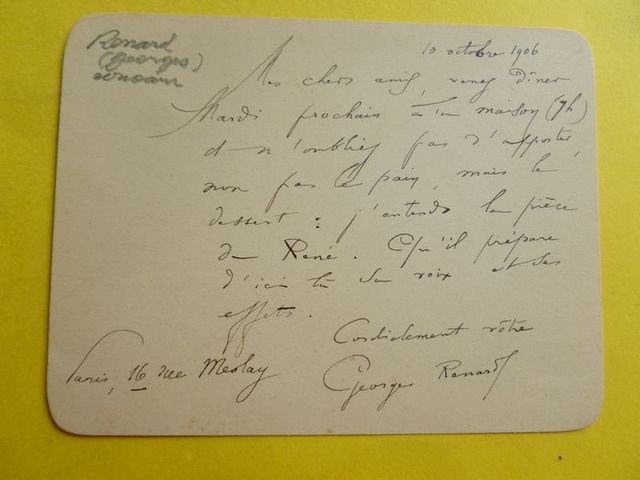 Renard
(Georges)
écrivain
10 octobre 1906
Mes chers amis, venez dîner
Mardi prochain à la maison (7h)
et n'oubliez pas d'apporter,
non pas le pain, mais le
dessert : j'entends la pièce
de René. Qu'il prépare
d'ici là sa voix et ses
effets.
Cordialement vôtre
Georges Renard
Paris, 16 rue Meslay